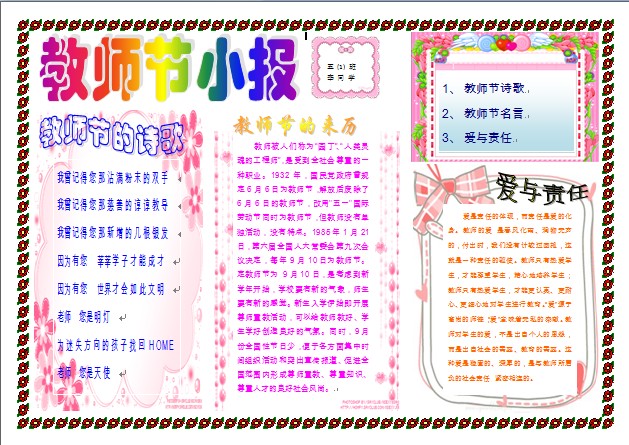 教师节小报
五（1）班
李同学
1、 教师节诗歌
2、 教师节名言
3、 爱与责任
教师节的诗歌
我曾记得你那沾满粉末的双手
我曾记得你那慈善的谆谆教导
我曾记得你那新增的几根银发
因为有你 莘莘学子才能成才
因为有你 世界才会如此文明
老师 你是明灯
为迷失方向的孩子找回 HOME
老师 你是天使
教师节的来历
教师被人们称为“园丁”、“人类灵
魂的工程师”,是受到全社会尊重的一
种职业。1932 年，国民党政府曾规
定 6 月 6 日为教师节，解放后废除了
6 月 6 日的教师节，改用“五一”国际
劳动节同时为教师节，但教师没有单
独活动，没有特点。1985 年 1 月 21
日，第六届全国人大常委会第九次会
议决定，每年 9 月 10 日为教师节。
定教师节为 9 月 10 日，是考虑到新
学年开始，学校要有新的气象，师生
要有新的感觉。新生入学伊始即开展
尊师重教活动，可以给教师教好、学
生学好创造良好的气氛。同时，9 月
份全国性节日少，便于各方面集中时
间组织活动和突出宣传报道、促进全
国范围内形成尊师重教、尊重知识、
尊重人才的良好社会风尚。
爱与责任
爱是责任的体现，而责任是爱的化
身。教师的爱 是春风化雨、满腔无声
的，付出时，我们没有计较过回报，这
就是一种责任的驱使。教师只有热爱学
生，才能尊重学生，精心地培养学生；
教师只有热爱学生，才能更认真、更耐
心、更细心地对学生进行教育。“爱”源于
高尚的师德
教师对学生的爱，不是出自个人的恩怨，
而是出自社会的需要、教育的需要。这
种爱是稳固的、深厚的，是与教师所肩
负的社会责任 紧密相连的。